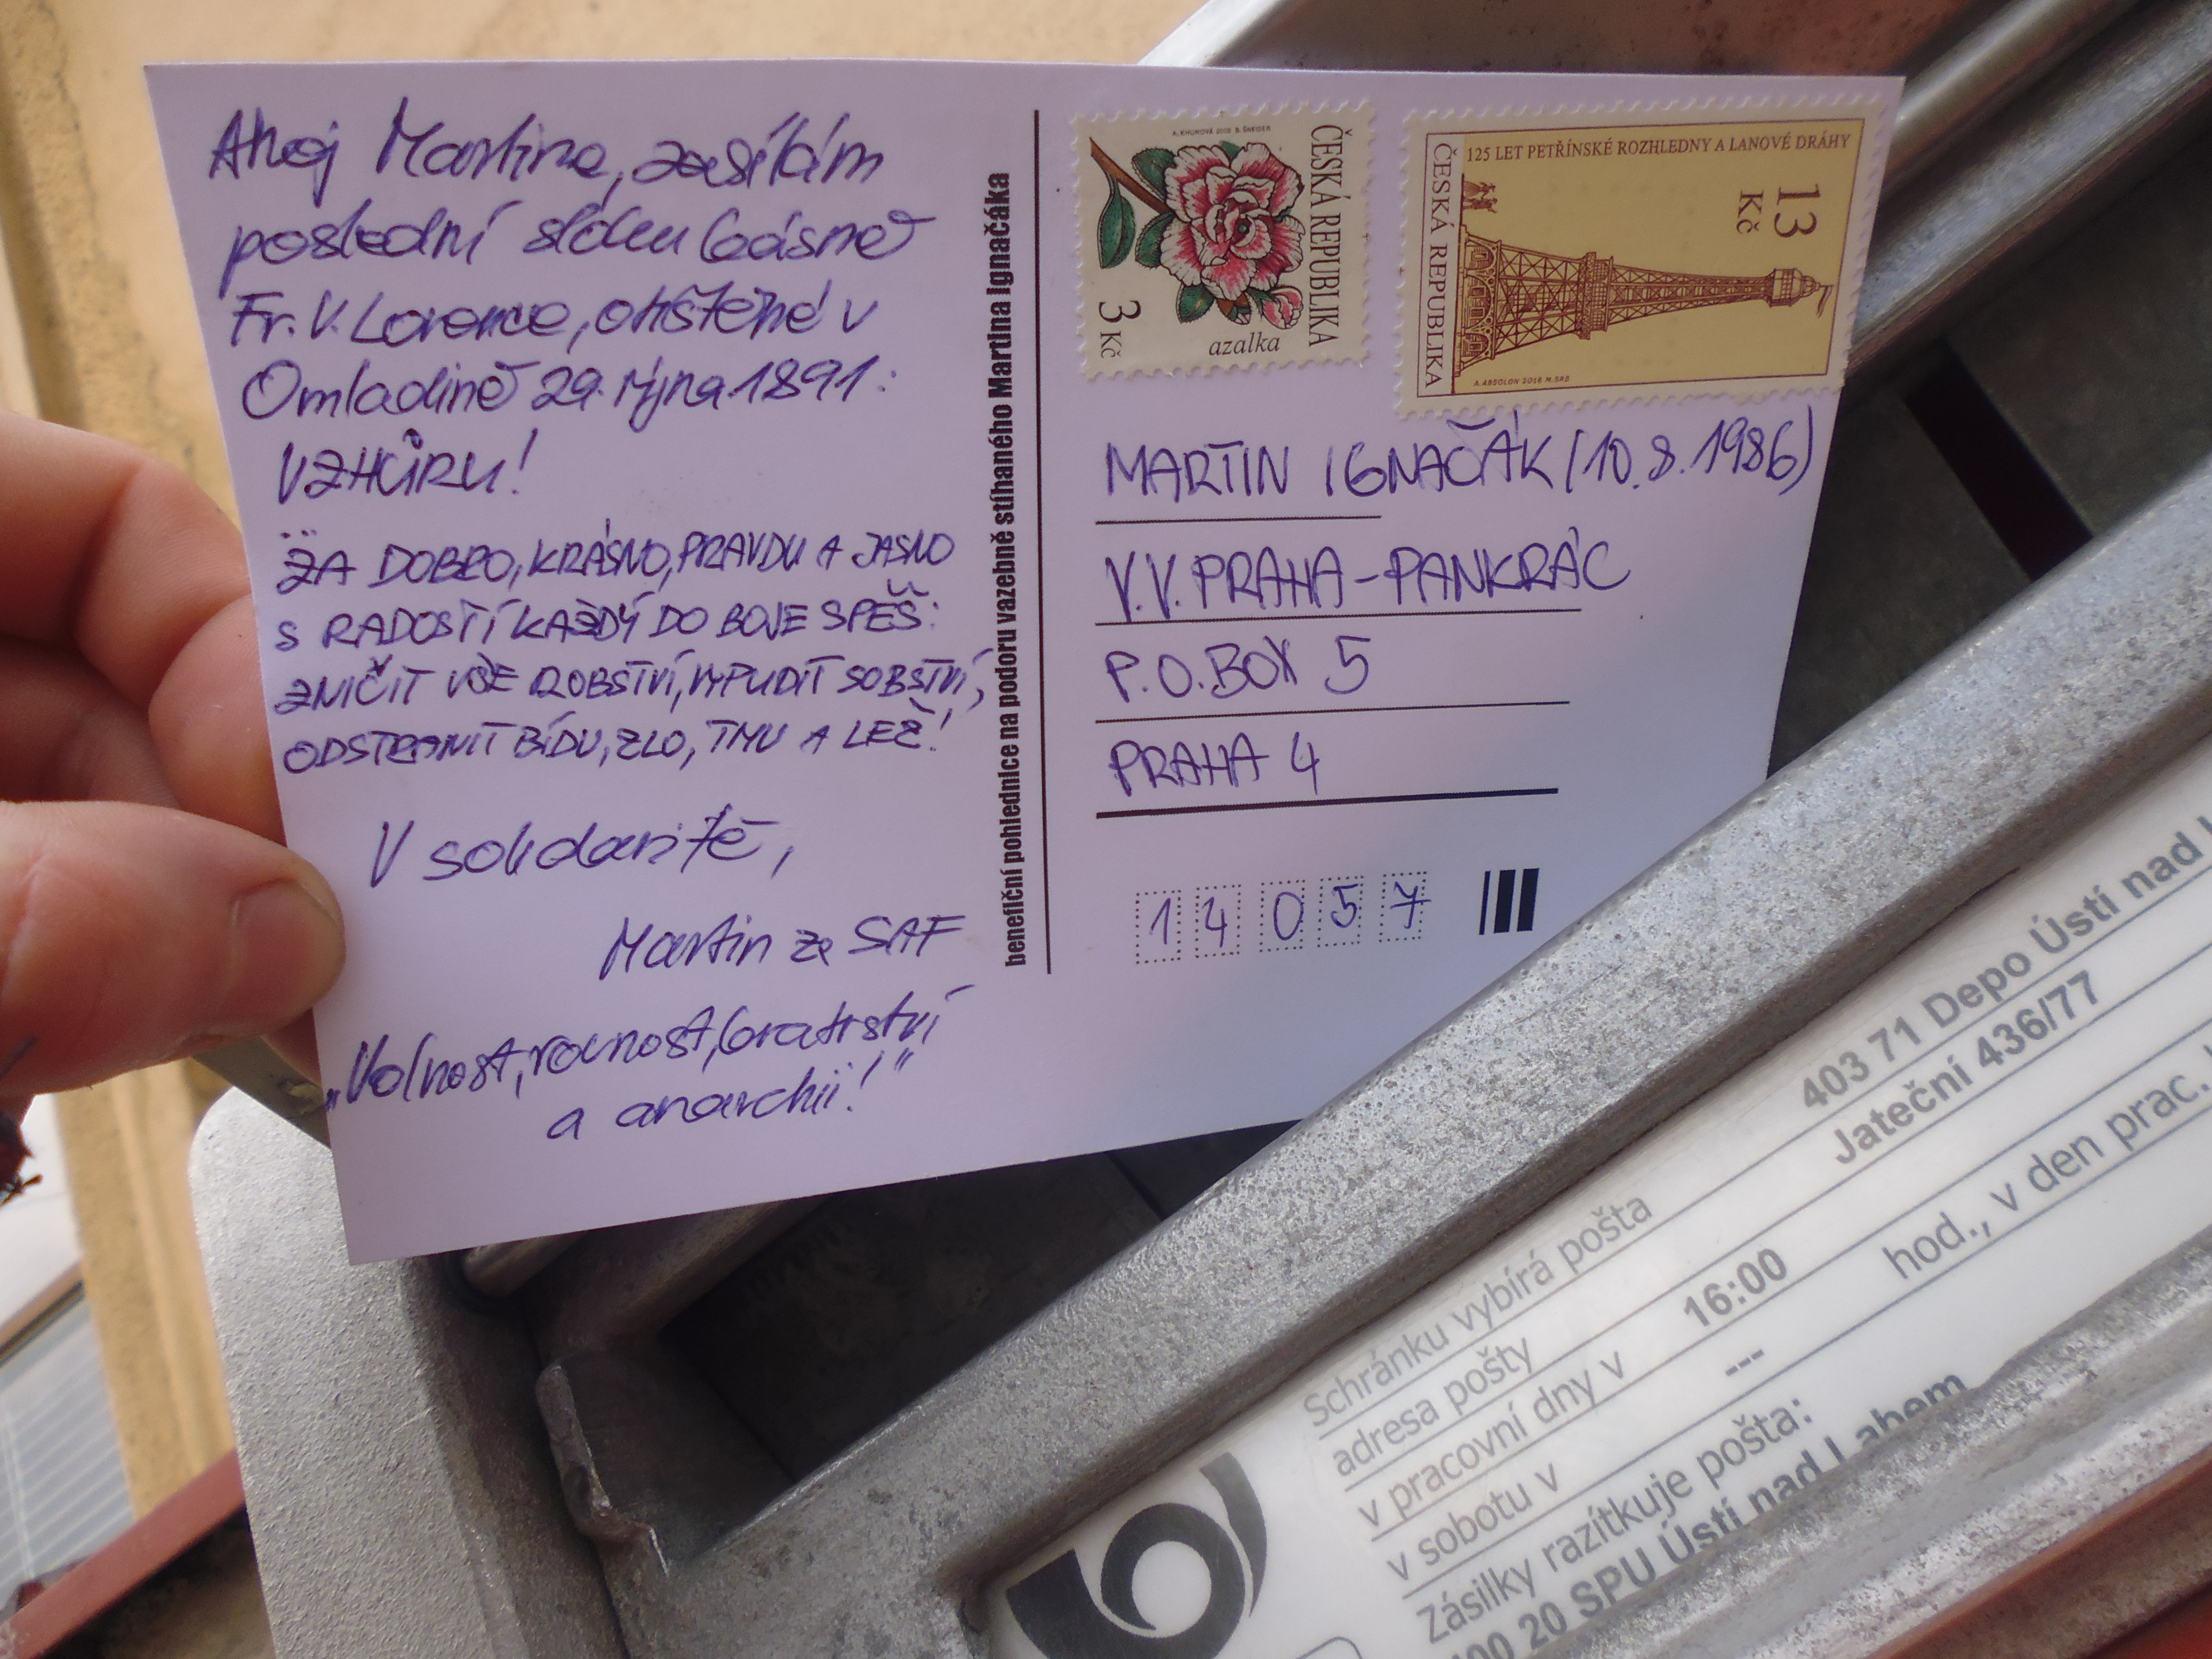 Ahoj Martine, zasílám
poslední sloku básně
Fr. V. Lorence, otištěné v
Omladině 29. října 1891:
VZHŮRU!
...
ZA DOBRO, KRÁSNO, PRAVDU A JASNO
S RADOSTÍ KAŽDÝ DO BOJE SPĚŠ:
ZNIČIT VŠE ROBSTVÍ, VYPUDIT SOBSTVÍ,
ODSTRANIT BÍDU, ZLO, TMU A LEŽ!
V solidaritě,
Martin ze SAF
„Volnost, rovnost, bratrství
a anarchii!"
benefiční pohlednice na podoru vazebně stíhaného Martina Ignačáka
A. KHUNOVÁ 2005 B. ŠNEIDER
ČESKÁ REPUBLIKA
azalka
3 Kč
125 LET PETŘÍNSKÉ ROZHLEDNY A LANOVÉ DRÁHY
ČESKÁ REPUBLIKA
13 Kč
A. ABSOLON 2016 M. SRB
MARTIN IGNAČÁK (10.8.1986)
V.V. PRAHA - PANKRÁC
P.O.BOX 5
PRAHA 4
14057
403 71 Depo Ústí nad
Schránku vybírá pošta
adresa pošty Jateční 436/77
v pracovní dny v 16:00 hod., v den prac.
v sobotu v ---
Zásilky razítkuje pošta:
20 SPU Ústí nad Labem